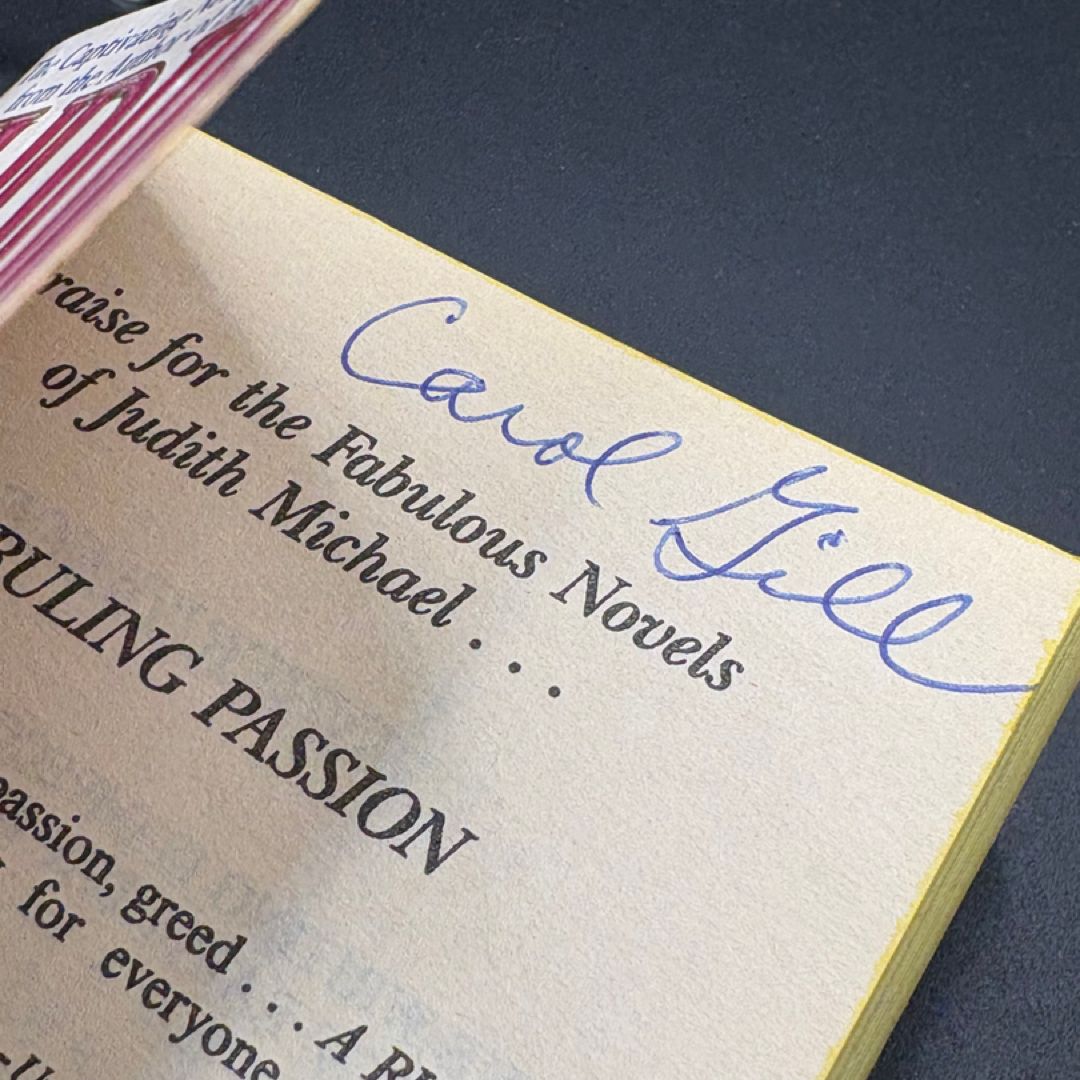 The Captivating
from the Author of
Carol Gill
raise for the Fabulous Novels
of Judith Michael . . .
RULING PASSION
passion, greed . . . A RU
for everyone